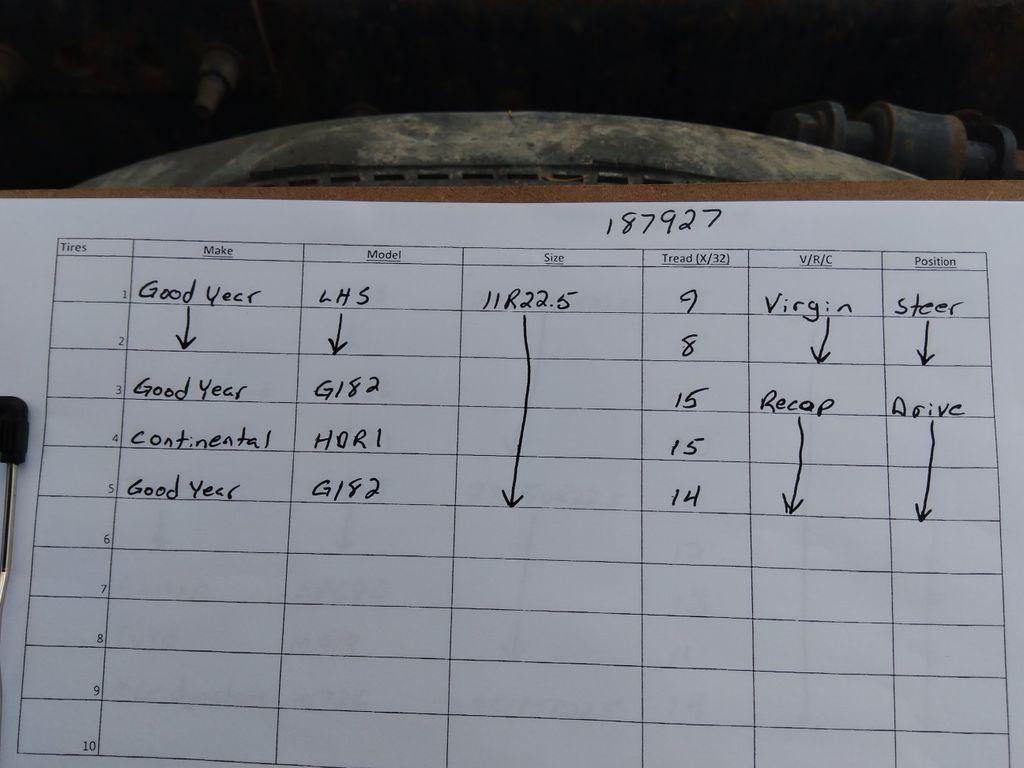 187927
Tires Make Model Size Tread (X/32) V/R/C Position
1 Good Year LHS 11R22.5 9 Virgin Steer
2 8
3 Good Year G182 15 Recap Drive
4 Continental HDR1 15
5 Good Year G182 14
6
7
8
9
10